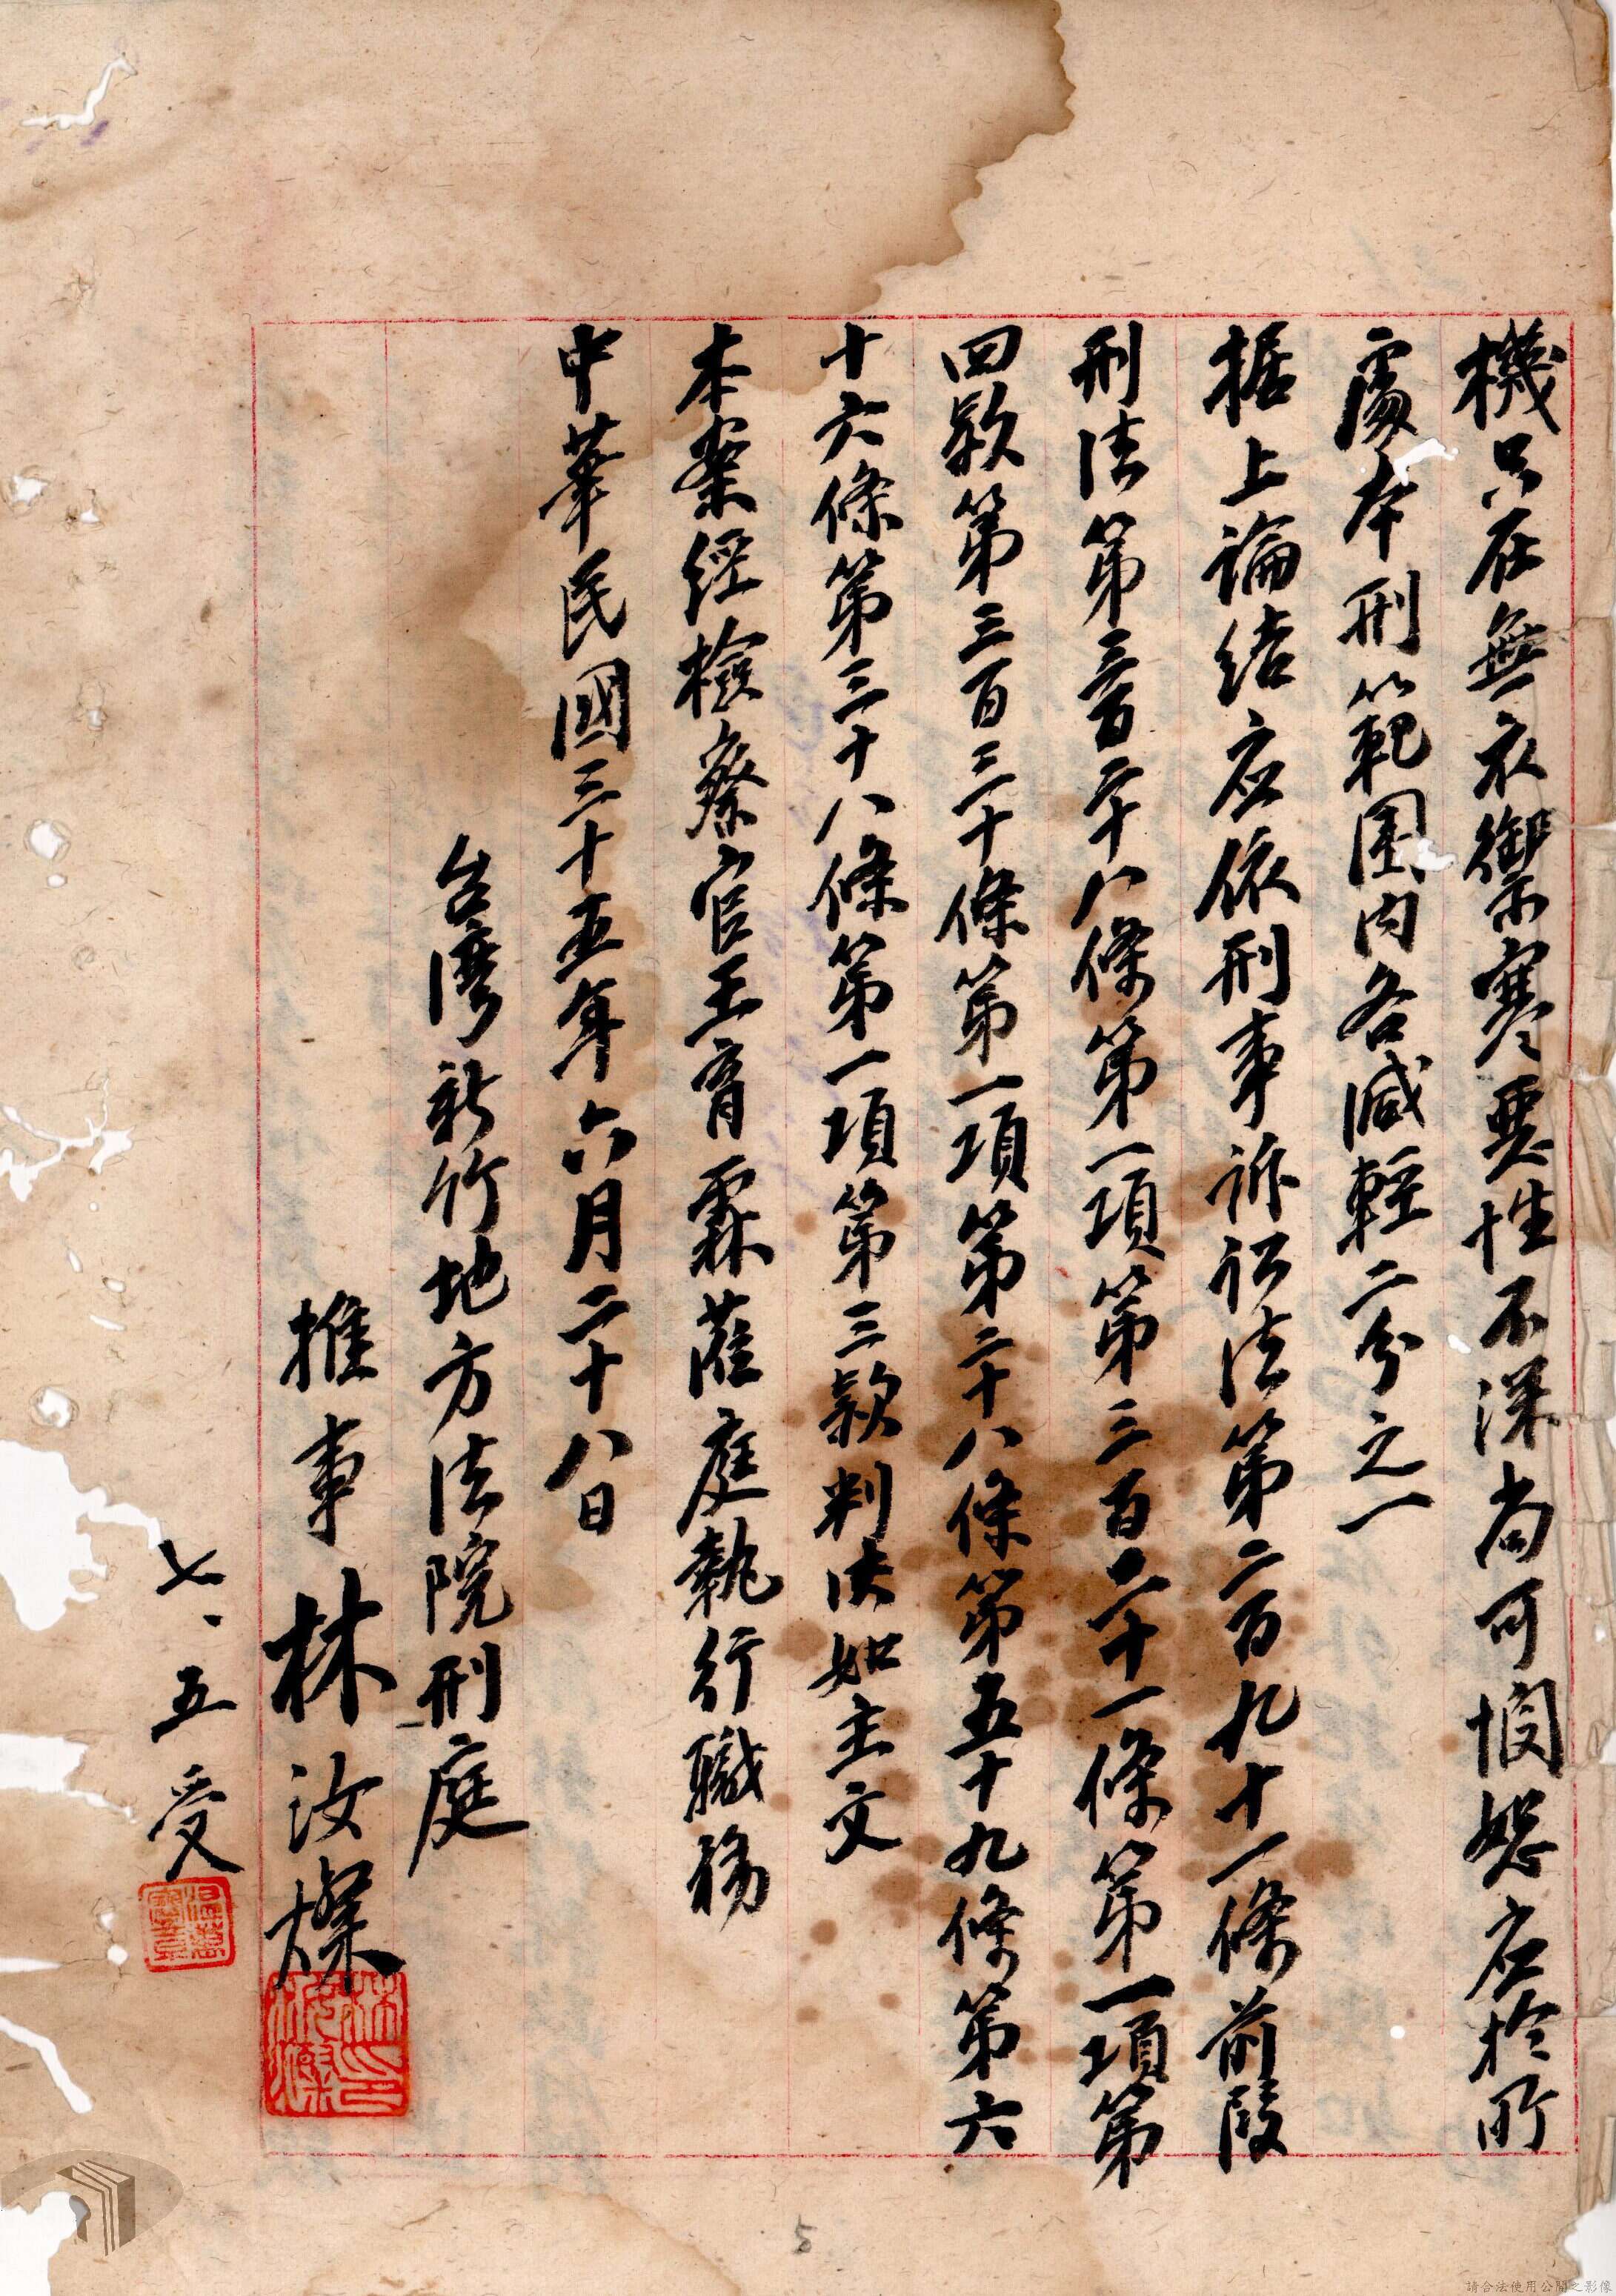 機只在無衣禦寒惡性不深尚可憫恕应於所
處本刑範圍內各減輕二分之一
据上論結应依刑事訴訟法第二百九十一條前段
刑法第三百二十八條第一項第三百二十一條第一項第
四款第三百三十條第一項第二十八條第五十九條第六
十六條第三十八條第一項第三款判決如主文
本案經檢察官王育霖蒞庭執行職務
中華民國三十五年六月二十八日
台灣新竹地方法院刑庭
推事林汝燦
七、五受
5
請合法使用公開之影像